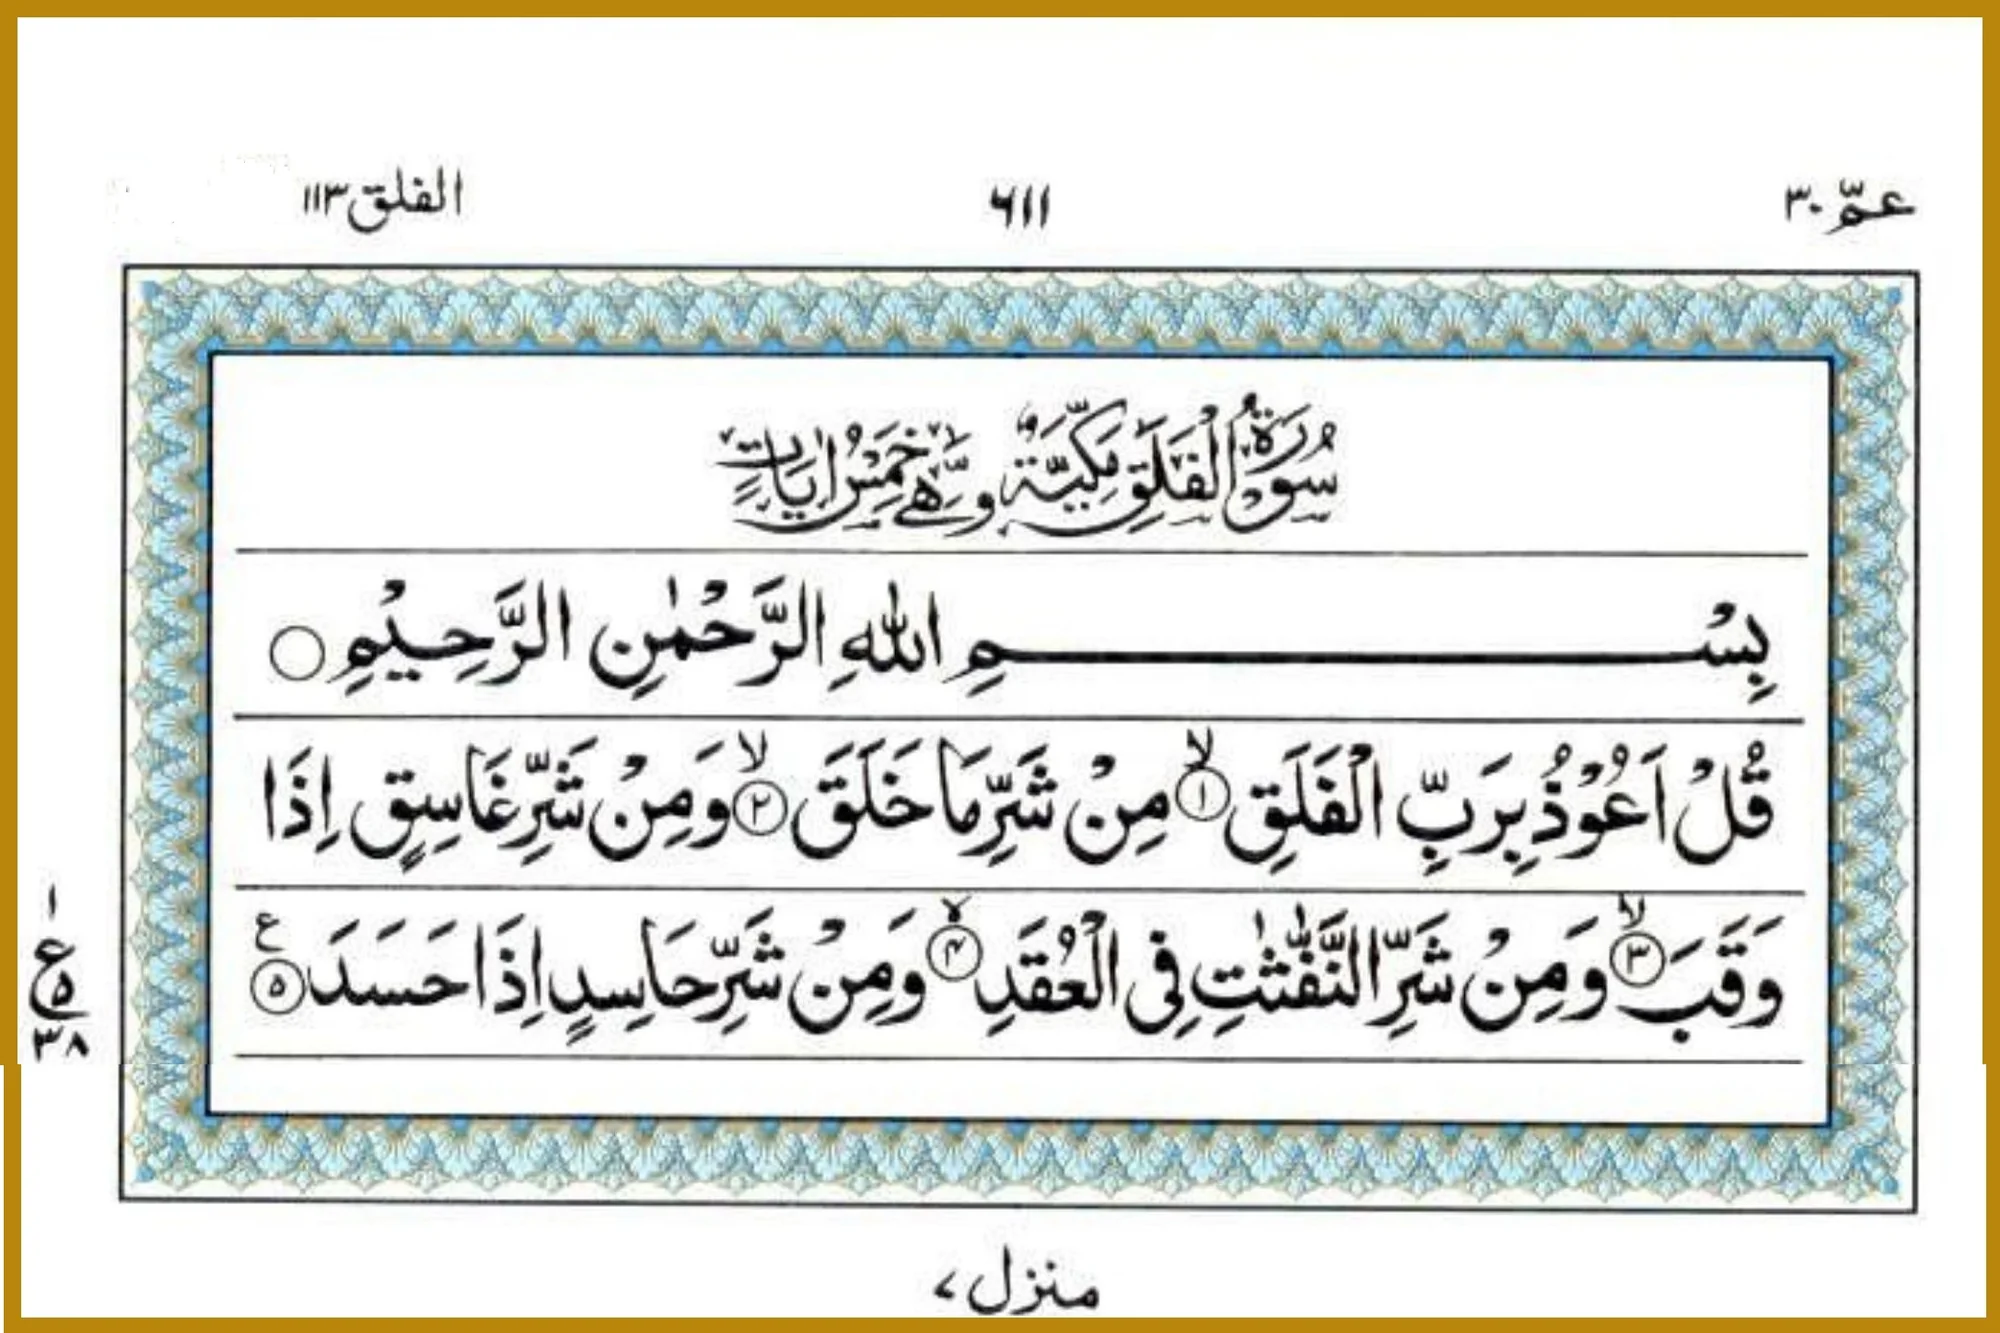 عمّ ۳۰
۶۱۱
الفلق ۱۱۳
سُوْرَةُ الْفَلَقِ مَكِّيَّةٌ وَّهِيَ خَمْسُ اٰيَاتٍ
بِسْمِ اللّٰهِ الرَّحْمٰنِ الرَّحِيْمِ ○
قُلْ اَعُوْذُ بِرَبِّ الْفَلَقِ ۙ﴿۱﴾ مِنْ شَرِّ مَا خَلَقَ ۙ﴿۲﴾ وَمِنْ شَرِّ غَاسِقٍ اِذَا
وَقَبَ ۙ﴿۳﴾ وَمِنْ شَرِّ النَّفّٰثٰتِ فِي الْعُقَدِ ۙ﴿۴﴾ وَمِنْ شَرِّ حَاسِدٍ اِذَا حَسَدَ ﴿۵﴾ ع
۱
ع ۵
۳۸
منزل ۷